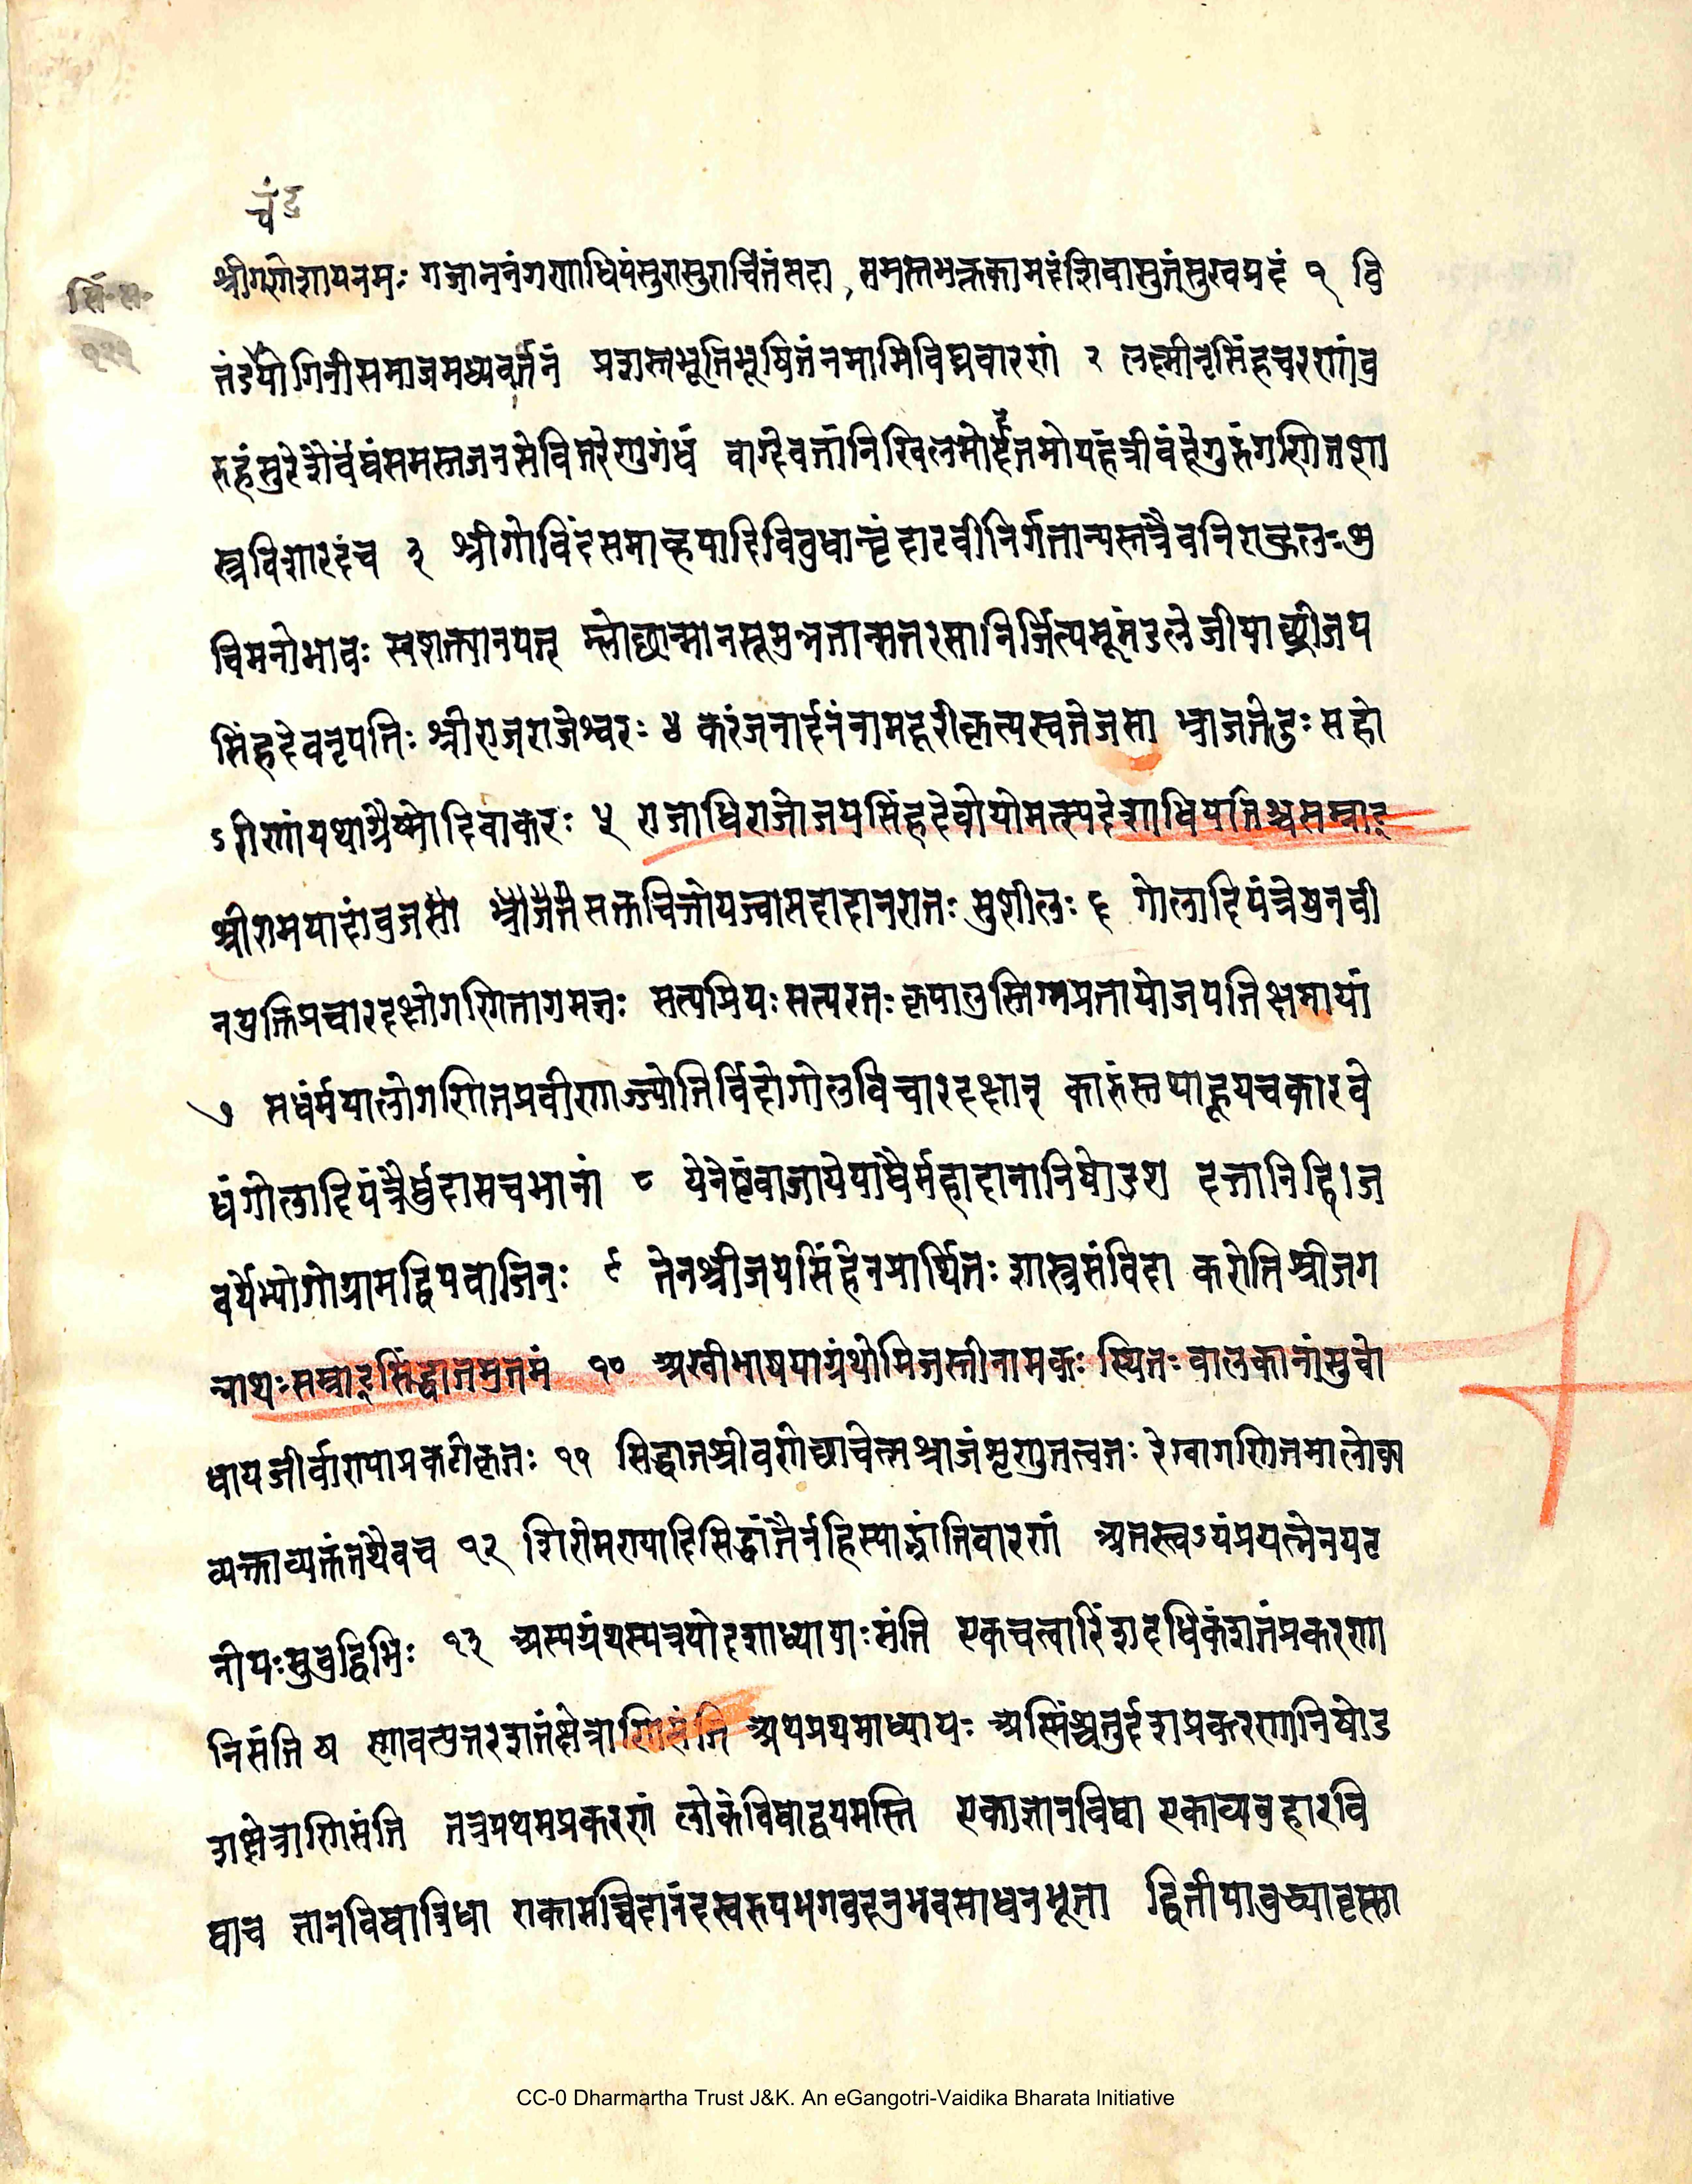 चंद्र
श्रीगणेशायनमः गजाननंगणाधिपंसुरासुरार्चितंसदा, समस्तभक्तकामदंशिवासुतंसुखप्रदं १ वि
तंडयोगिनीसमाजमध्यवर्तिनं प्रशस्तभूतिभूषितंनमामिविघ्नवारणं २ लक्ष्मीनृसिंहचरणांबु
रुहंसुरेशैर्वंद्यंसमस्तजनसेवितरेणुगंधं वाग्देवतांनिखिलमोहतमोपहंत्रीवंदेगुरुंगणितशा
स्त्रविशारदंच ३ श्रीगोविंदसमाव्हयादिविबुधान्वृंदाटवीनिर्गतान्यस्तत्रैवनिराकुलःशु
चिमनोभावः स्वशक्त्यानयत् म्लेछान्मानसमुन्नतान्स्वतरसानिर्जित्यभूमंडलेजीयाच्छ्रीजय
सिंहदेवनृपतिः श्रीराजराजेश्वरः ४ करंजनार्दनंनामदूरीकृत्यस्वतेजसा भ्राजतेदुःसहो
ऽरीणांयथाग्रैष्मोदिवाकरः ५ राजाधिराजोजयसिंहदेवोयोमत्स्यदेशाधिपतिश्चसम्राट्
श्रीरामपादांबुजसौ सक्तचित्तोयज्वासदादानरातः सुशीलः ६ गोलादियंत्रेषुनवी
नयुक्तिप्रचारदक्षोगणितागमज्ञः सत्यप्रियःसत्यरतःकृपालुस्तिग्मप्रतापोजयतिक्षमायां
७ सधर्मपालोगणितप्रवीणाज्ज्योतिर्विदोगोलविचारदक्षान् कारुंस्तथाहूयचकारवे
धंगोलादियंत्रैर्द्युदासचभानां ८ येनेष्टंवाजपेयाद्यैर्महादानानिषोडश दत्तानिद्विज
वर्येभ्योगोग्रामद्विपवाजिनः ९ तेनश्रीजयसिंहेनप्रार्थितःशास्त्रसंविदा करोतिश्रीजग
न्नाथःसम्राट्सिद्धांतमुत्तमं १० अरबीभाषयाग्रंथोमिजस्तीनामकःस्थितः बालकानांसुबो
धायगीर्वाण्याप्रकटीकृतः ११ सिद्धांतश्रीवणेछाचेत्सभ्राजंशृणुतत्वतः रेखागणितमालोक्य
व्यक्ताव्यक्तंतथैवच १२ शिरोमण्यादिसिद्धांतैर्नहिस्याद्भ्रांतिवारणं अतस्त्वऽयंप्रयत्नेनपठ
नीयःसुबुद्धिभिः १३ अस्यग्रंथस्यत्रयोदशाध्यायाःसंति एकचत्वारिंशदधिकंशतंप्रकरणा
निसंति ष ण्णवत्युत्तरशतंक्षेत्राणिसंति अथप्रथमाध्यायः अस्मिंश्चतुर्दशप्रकरणानिषोड
शक्षेत्राणिसंति तत्रप्रथमप्रकरणं लोकेविद्याद्वयमस्ति एकाज्ञानविद्या एकाव्यवहारवि
द्याच ज्ञानविद्याद्विधा एकासच्चिदानंदस्वरूपभगवदनुभवसाधनभूता द्वितीया
CC-0 Dharmartha Trust J&K. An eGangotri-Vaidika Bharata Initiative